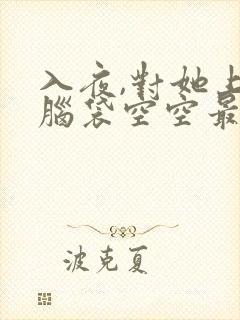 入夜,對她上
腦袋空空最
波克夏